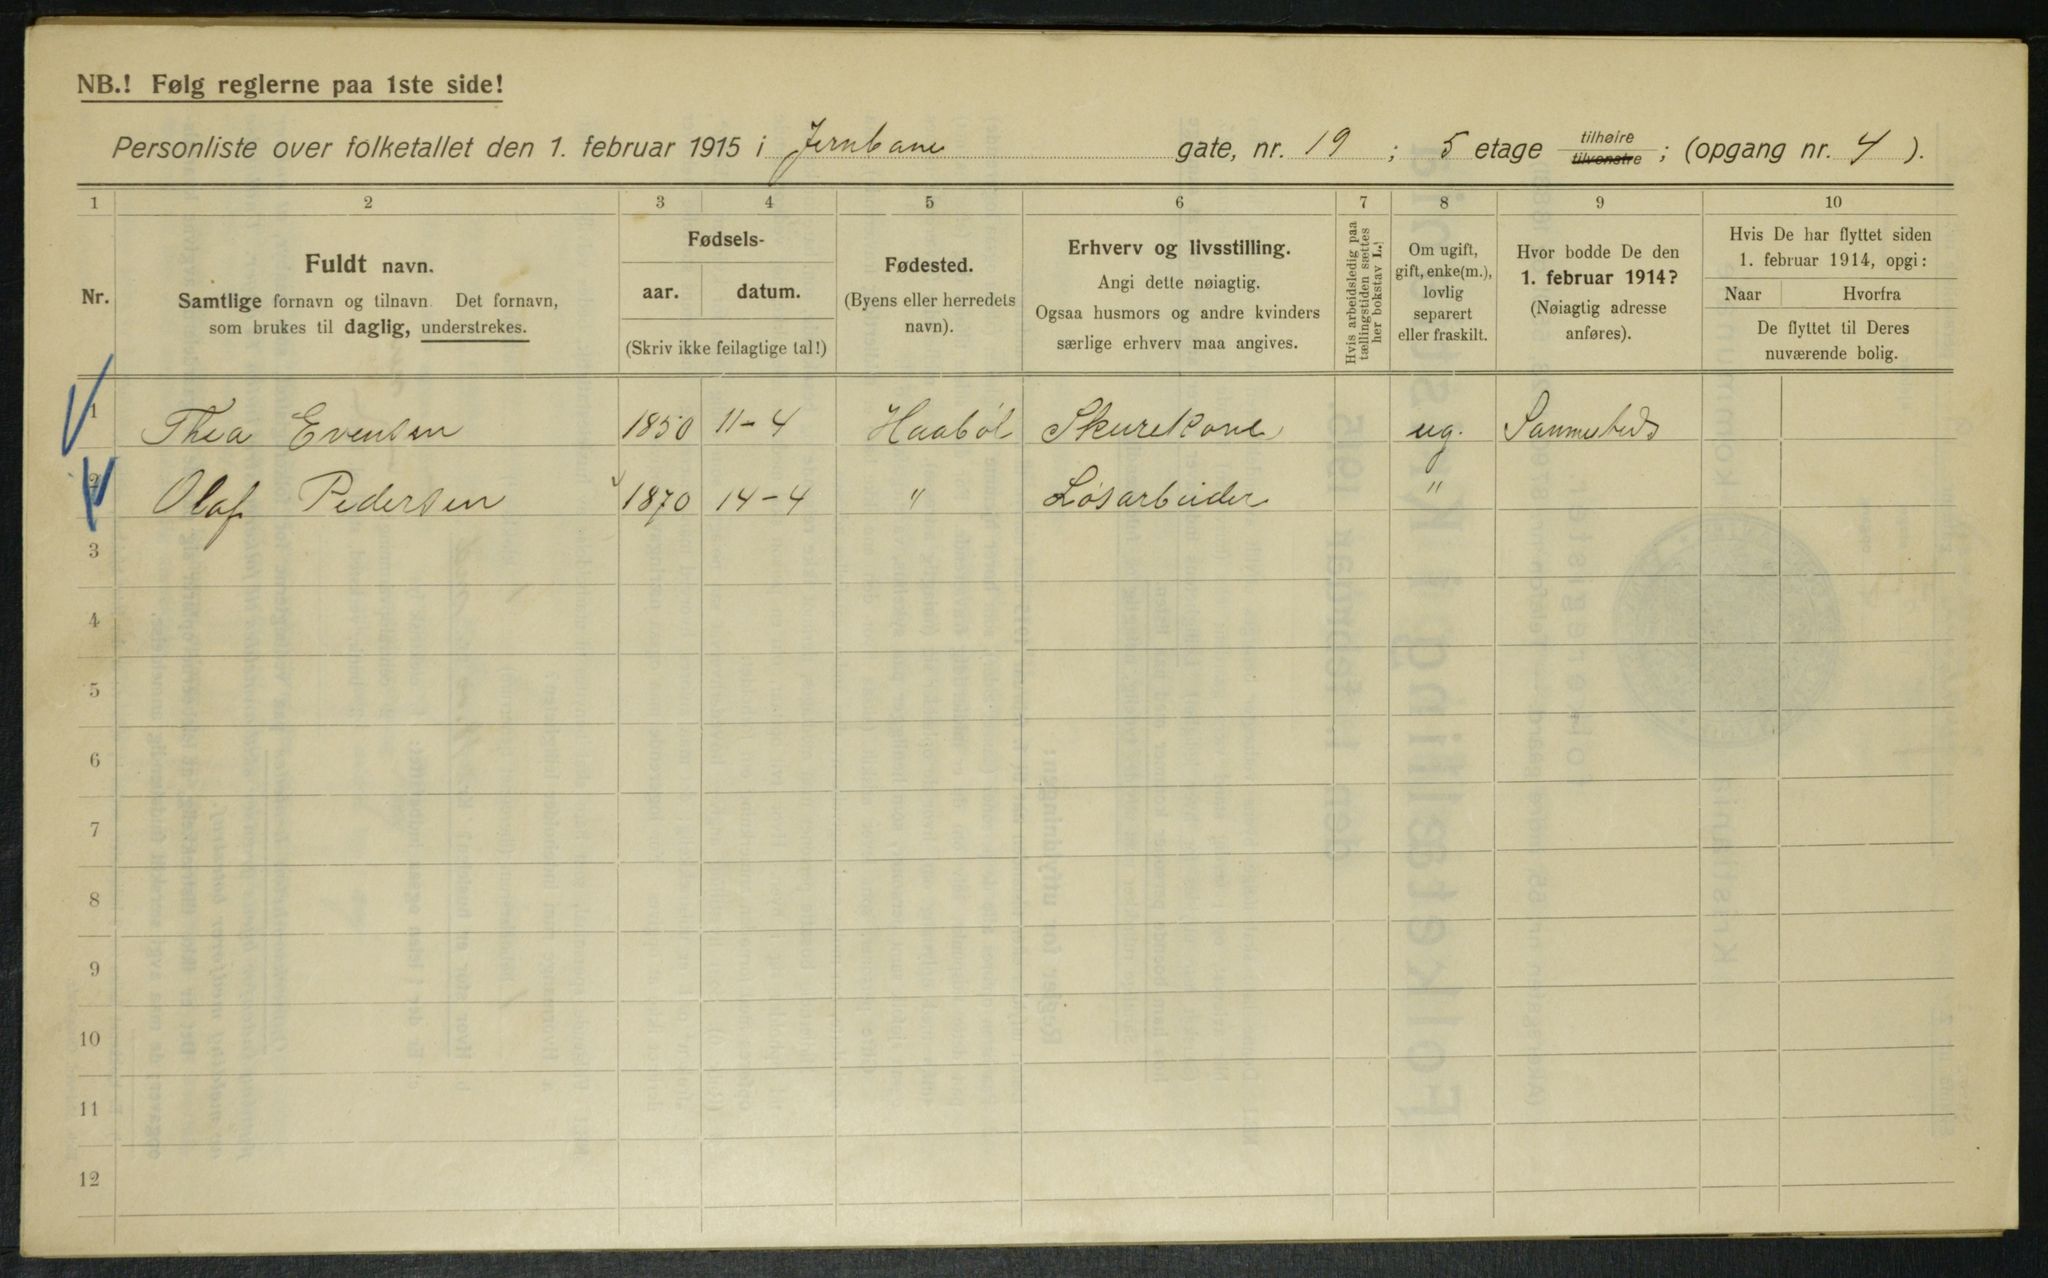 NB.! Følg reglerne paa 1ste side!
Personliste over folketallet den 1. februar 1915 i Jernbane gate, nr. 19 ; 5 etage tilhøire tilvenstre ; (opgang nr. 4 ).
1 2 3 4 5 6 7 8 9 10
Nr.
Fuldt navn.
Samtlige fornavn og tilnavn Det fornavn,
som brukes til daglig, understrekes.
Fødsels-
aar. datum.
(Skriv ikke feilagtige tal!)
Fødested.
(Byens eller herredets
navn).
Erhverv og livsstilling.
Angi dette nøiagtig.
Ogsaa husmors og andre kvinders
særlige erhverv maa angives.
Hvis arbeidsledig paa
tællingstiden sættes
her bokstav L.
Om ugift,
gift, enke(m.),
lovlig
separert
eller fraskilt.
Hvor bodde De den
1. februar 1914?
(Nøiagtig adresse
anføres).
Hvis De har flyttet siden
1. februar 1914, opgi:
Naar Hvorfra
De flyttet til Deres
nuværende bolig.
1 Thea Evensen 1850 11-4 Haabøl Skurekone ug. Sammesteds
2 Olaf Pedersen 1870 14-4 " Løsarbeider "
3
4
5
6
7
8
9
10
11
12